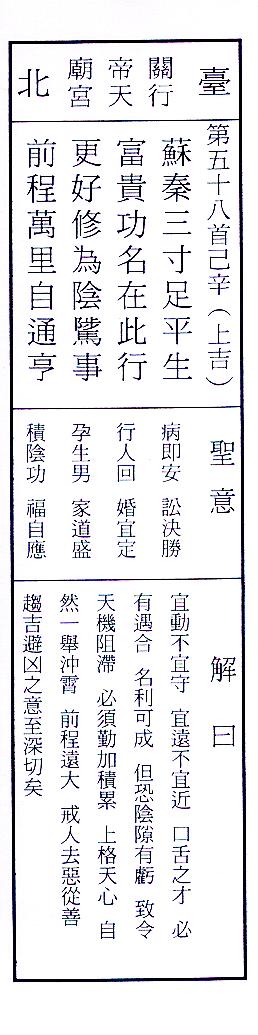 臺
關行
帝天
廟宮
北
第五十八首己辛（上吉）
蘇秦三寸足平生
富貴功名在此行
更好修為陰騭事
前程萬里自通亨
聖意
病即安 訟決勝
行人回 婚宜定
孕生男 家道盛
積陰功 福自應
解曰
宜動不宜守 宜遠不宜近 口舌之才 必
有遇合 名利可成 但恐陰隙有虧 致令
天機阻滯 必須勤加積累 上格天心 自
然一舉沖霄 前程遠大 戒人去惡從善
趨吉避凶之意至深切矣